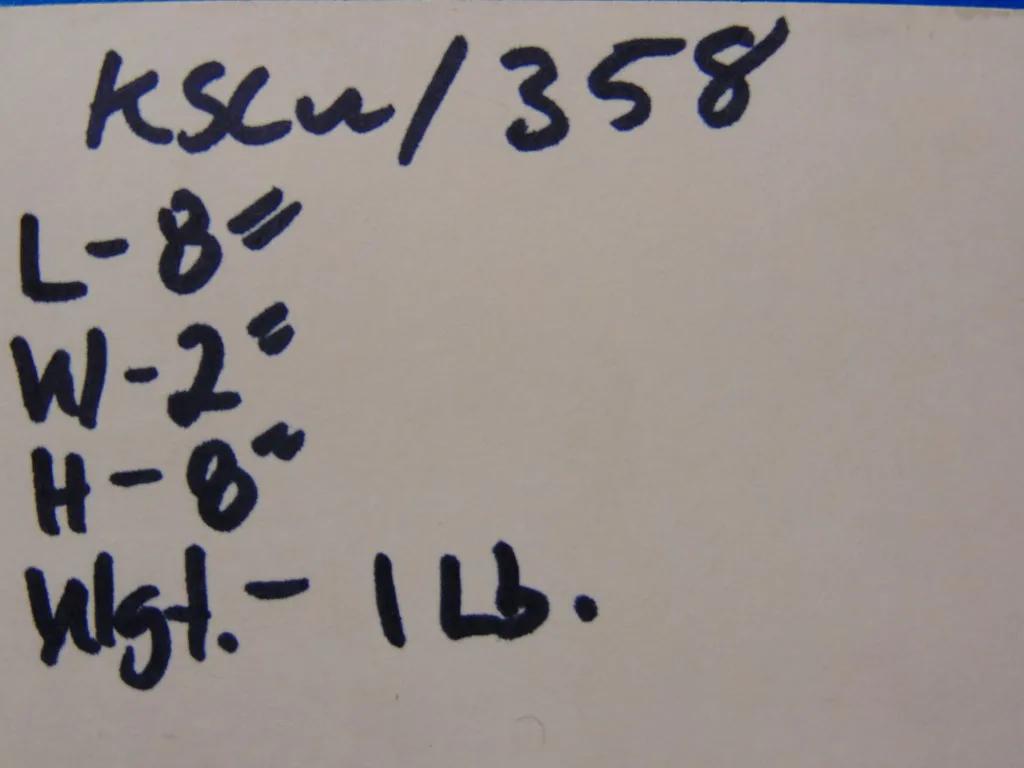 KSCW/358
L-8"
W-2"
H-8"
Wgt.- 1 Lb.